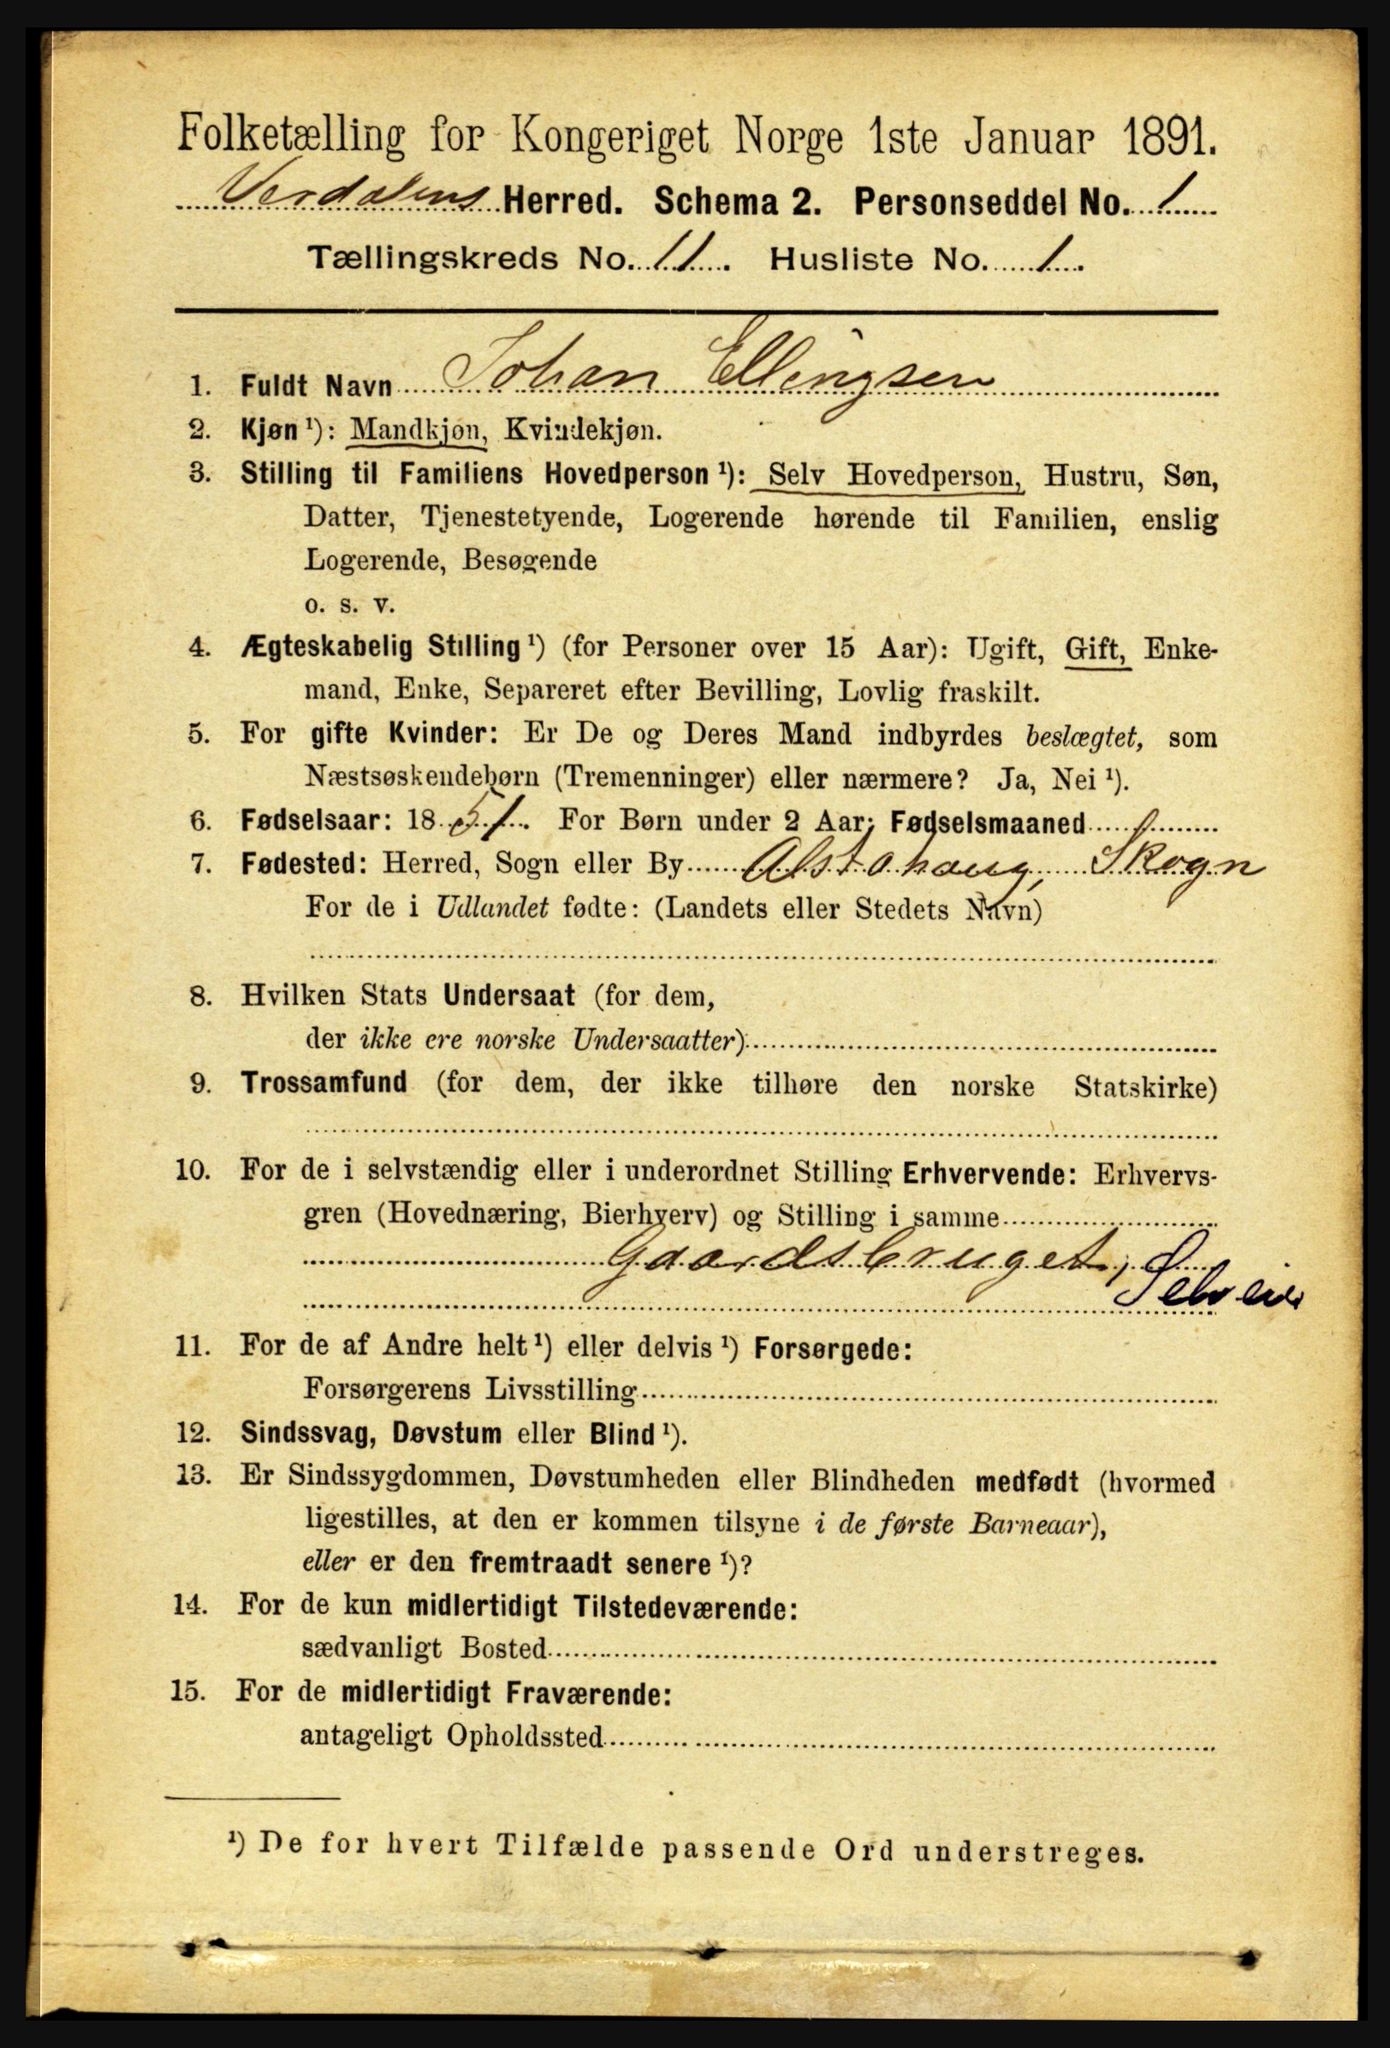 Folketælling for Kongeriget Norge 1ste Januar 1891.
Verdalens Herred. Schema 2. Personseddel No. 1
Tællingskreds No. 11. Husliste No. 1.
1. Fuldt Navn Johan Ellingsen
2. Kjøn ¹): Mandkjøn, Kvindekjøn.
3. Stilling til Familiens Hovedperson ¹): Selv Hovedperson, Hustru, Søn,
Datter, Tjenestetyende, Logerende hørende til Familien, enslig
Logerende, Besøgende
o. s. v.
4. Ægteskabelig Stilling ¹) (for Personer over 15 Aar): Ugift, Gift, Enke-
mand, Enke, Separeret efter Bevilling, Lovlig fraskilt.
5. For gifte Kvinder: Er De og Deres Mand indbyrdes beslægtet, som
Næstsøskendebørn (Tremenninger) eller nærmere? Ja, Nei ¹).
6. Fødselsaar: 1851. For Børn under 2 Aar: Fødselsmaaned
7. Fødested: Herred, Sogn eller By Alstahaug, Skogn
For de i Udlandet fødte: (Landets eller Stedets Navn)
8. Hvilken Stats Undersaat (for dem,
der ikke ere norske Undersaatter)
9. Trossamfund (for dem, der ikke tilhøre den norske Statskirke)
10. For de i selvstændig eller i underordnet Stilling Erhvervende: Erhvervs-
gren (Hovednæring, Bierhverv) og Stilling i samme
Gaardsbruget,
Selveier
11. For de af Andre helt ¹) eller delvis ¹) Forsørgede:
Forsørgerens Livsstilling
12. Sindssvag, Døvstum eller Blind ¹).
13. Er Sindssygdommen, Døvstumheden eller Blindheden medfødt (hvormed
ligestilles, at den er kommen tilsyne i de første Barneaar),
eller er den fremtraadt senere ¹)?
14. For de kun midlertidigt Tilstedeværende:
sædvanligt Bosted
15. For de midlertidigt Fraværende:
antageligt Opholdssted
¹) De for hvert Tilfælde passende Ord understreges.